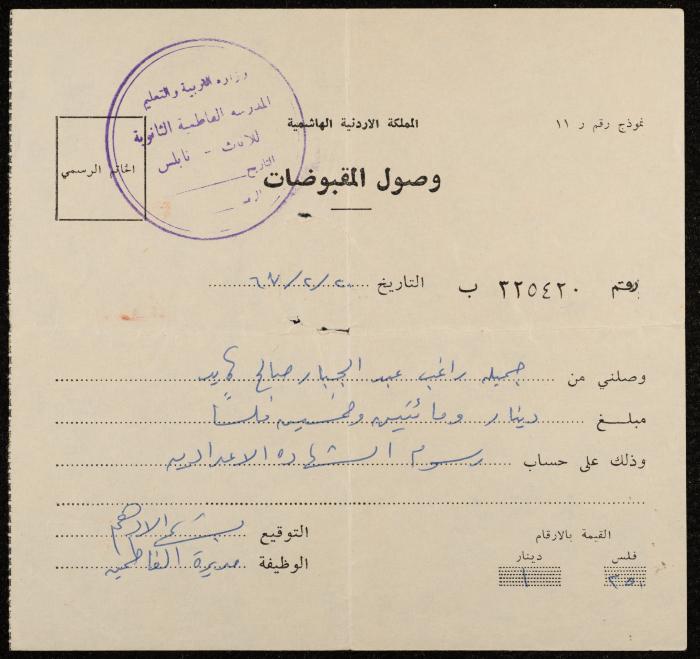 نموذج رقم ر ١١
المملكة الاردنية الهاشمية
وزارة التربية والتعليم
المدرسة الفاطمية الثانوية
للاناث - نابلس
التاريخ
الخاتم الرسمي
وصول المقبوضات
رقم ٣٢٥٤٢٠ ب
التاريخ ٦٧/٢/٢٠
وصلني من جميله راغب عبد الجبار صالح
مبلغ دينار ومائتين وخمسين فلسا
وذلك على حساب رسوم الشهاده الاعداديه
القيمة بالارقام
فلس دينار
٢٥٠ ١
التوقيع
الوظيفة مديرة الفاطميه